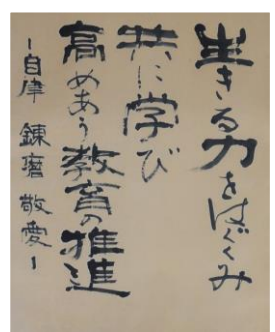 生きる力をはぐくみ
共に学び
高めあう教育の推進
－自律 錬磨 敬愛－